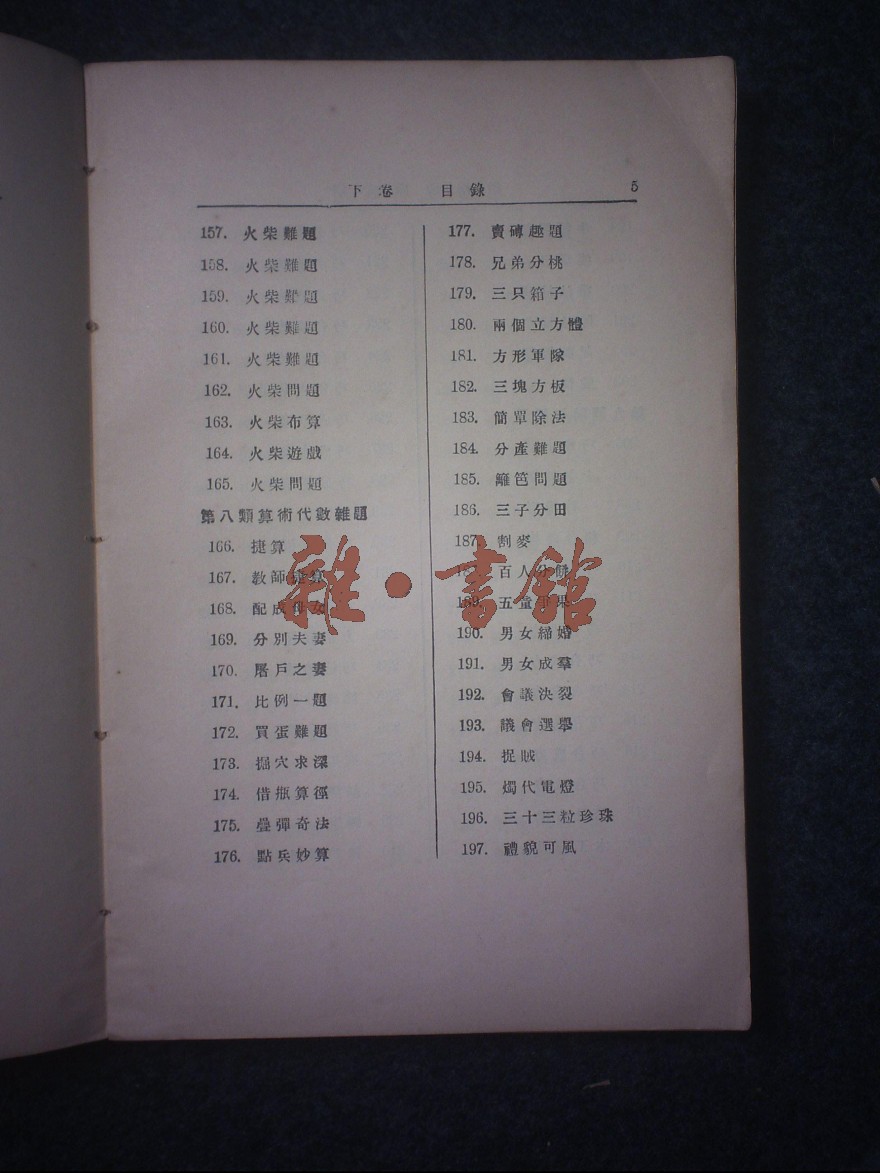 下卷 目錄 5
157. 火柴難題
158. 火柴難題
159. 火柴難題
160. 火柴難題
161. 火柴難題
162. 火柴問題
163. 火柴布算
164. 火柴遊戲
165. 火柴問題
第八類算術代數雜題
166. 捷算
167. 教師捷算
168. 配成佳女
169. 分別夫妻
170. 屠戶之妻
171. 比例一題
172. 買蛋難題
173. 掘穴求深
174. 借瓶算徑
175. 疊彈奇法
176. 點兵妙算
177. 賣磚趣題
178. 兄弟分桃
179. 三只箱子
180. 兩個立方體
181. 方形軍隊
182. 三塊方板
183. 簡單除法
184. 分產難題
185. 籬笆問題
186. 三子分田
187. 割麥
百人分餅
189. 五童 果
190. 男女締婚
191. 男女成羣
192. 會議決裂
193. 議會選舉
194. 捉賊
195. 燭代電燈
196. 三十三粒珍珠
197. 禮貌可風
雜·書館